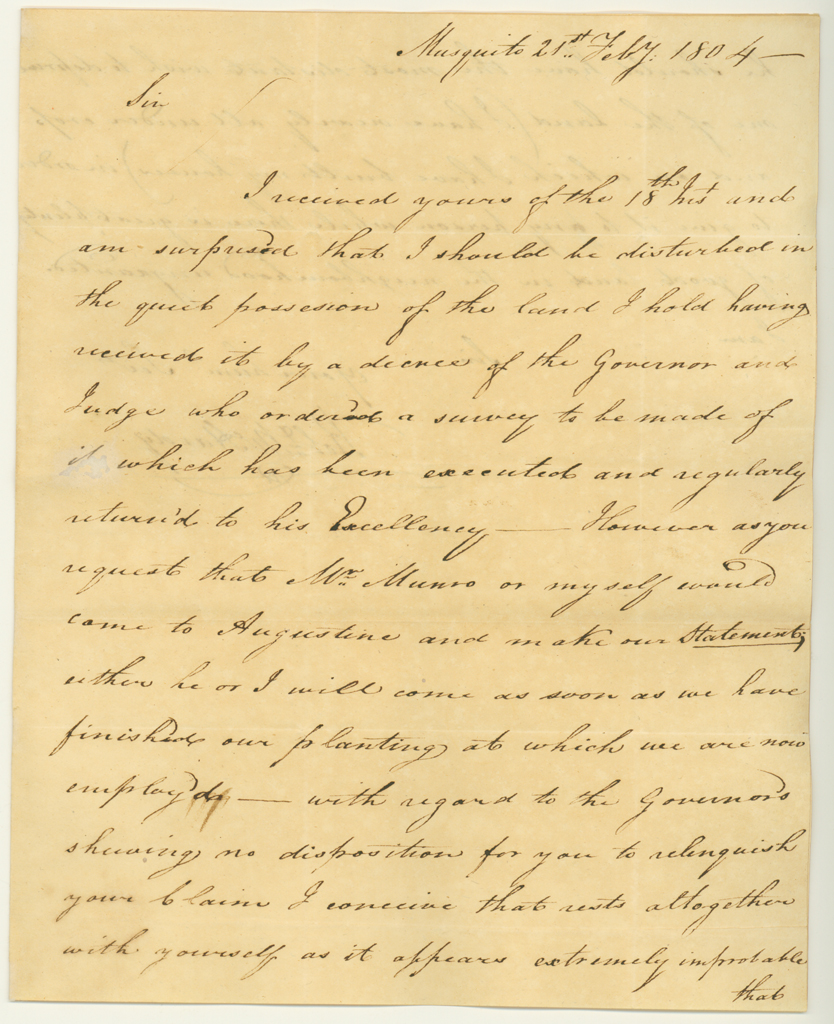 Musquito 21st Feby. 1804 —
Sir
I received yours of the 18th Inst and
am surprised that I should be disturbed in
the quiet possesion of the land I hold having
received it by a decree of the Governor and
Judge who ordered a survey to be made of
it which has been executed and regularly
return'd to his Excellency — However as you
request that Mr. Munro or myself would
come to Augustine and make our Statement;
either he or I will come as soon as we have
finished our planting at which we are now
employ'd — with regard to the Governors
shewing no disposition for you to relinquish
your Claim I conceive that rests altogether
with yourself as it appears extremely improbable
that